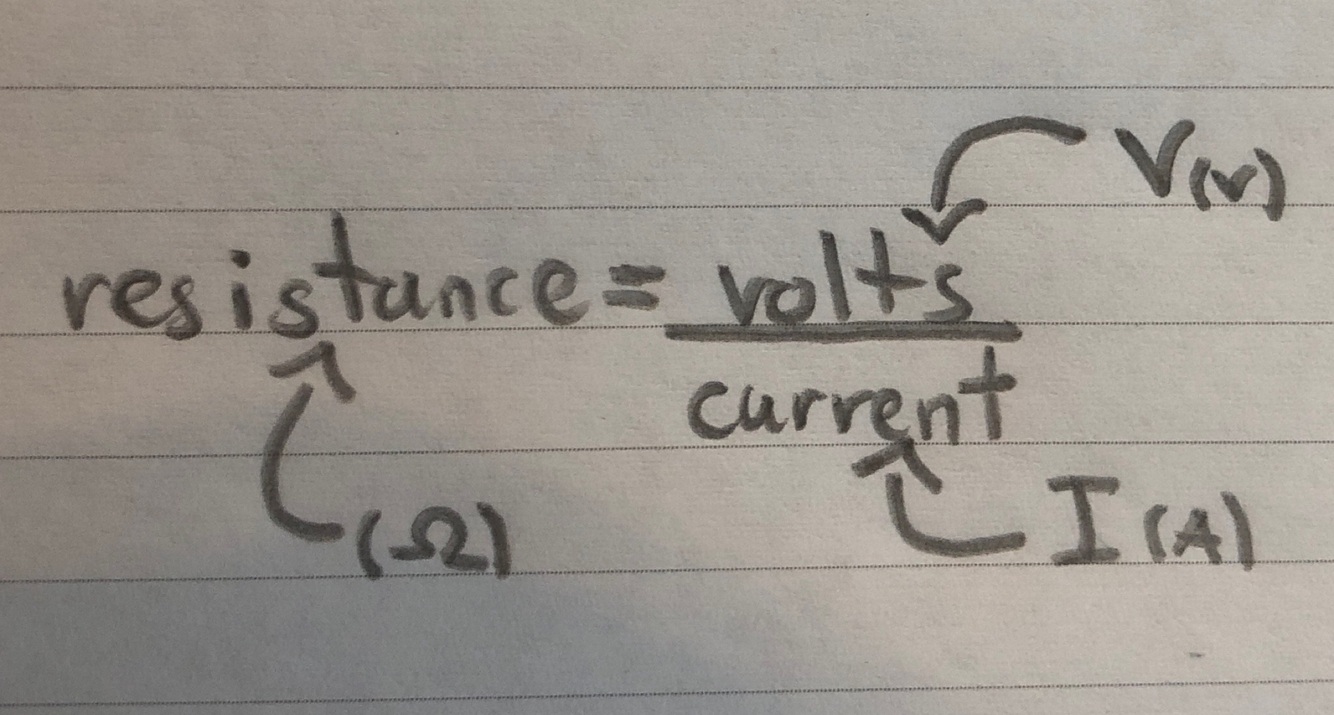 V(v)
resistance = volts
current
(Ω)
I (A)